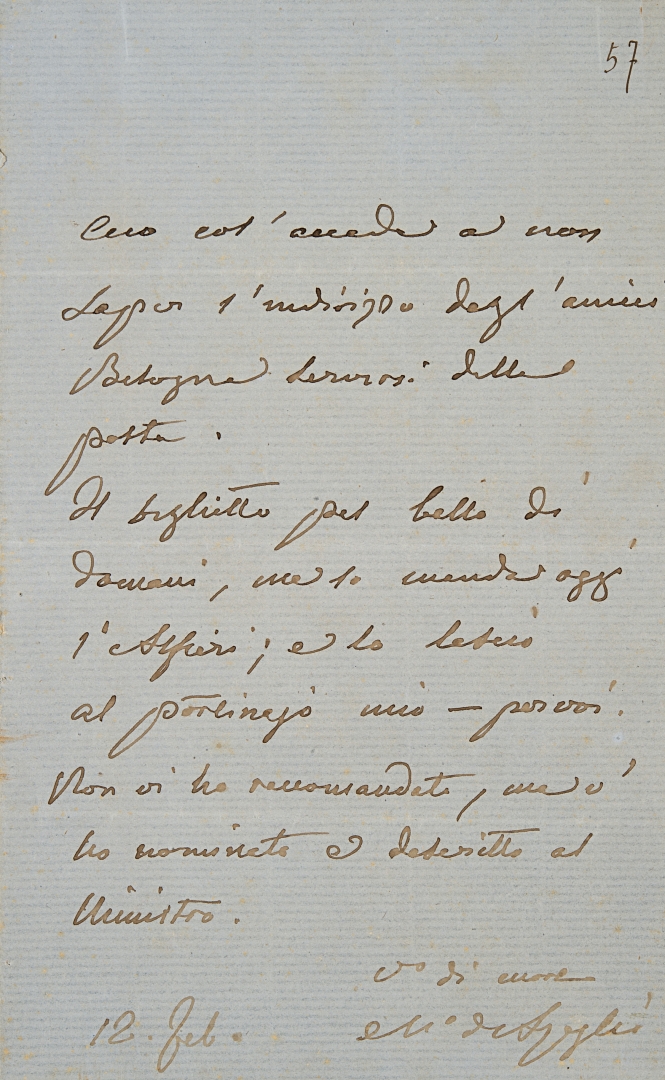 57
Ecco cos' accade a non
saper l'indirizzo degl'amici
Bisogna servirsi della
posta.
Il biglietto pel ballo di
domani, me lo manda oggi
l'Alfieri; e lo lascio
al portinajo mio — per voi.
Non vi ho raccomandato, ma v'
ho nominato e descritto al
Ministro.
Vo di cuore
12. Feb.
Mo d'Azeglio